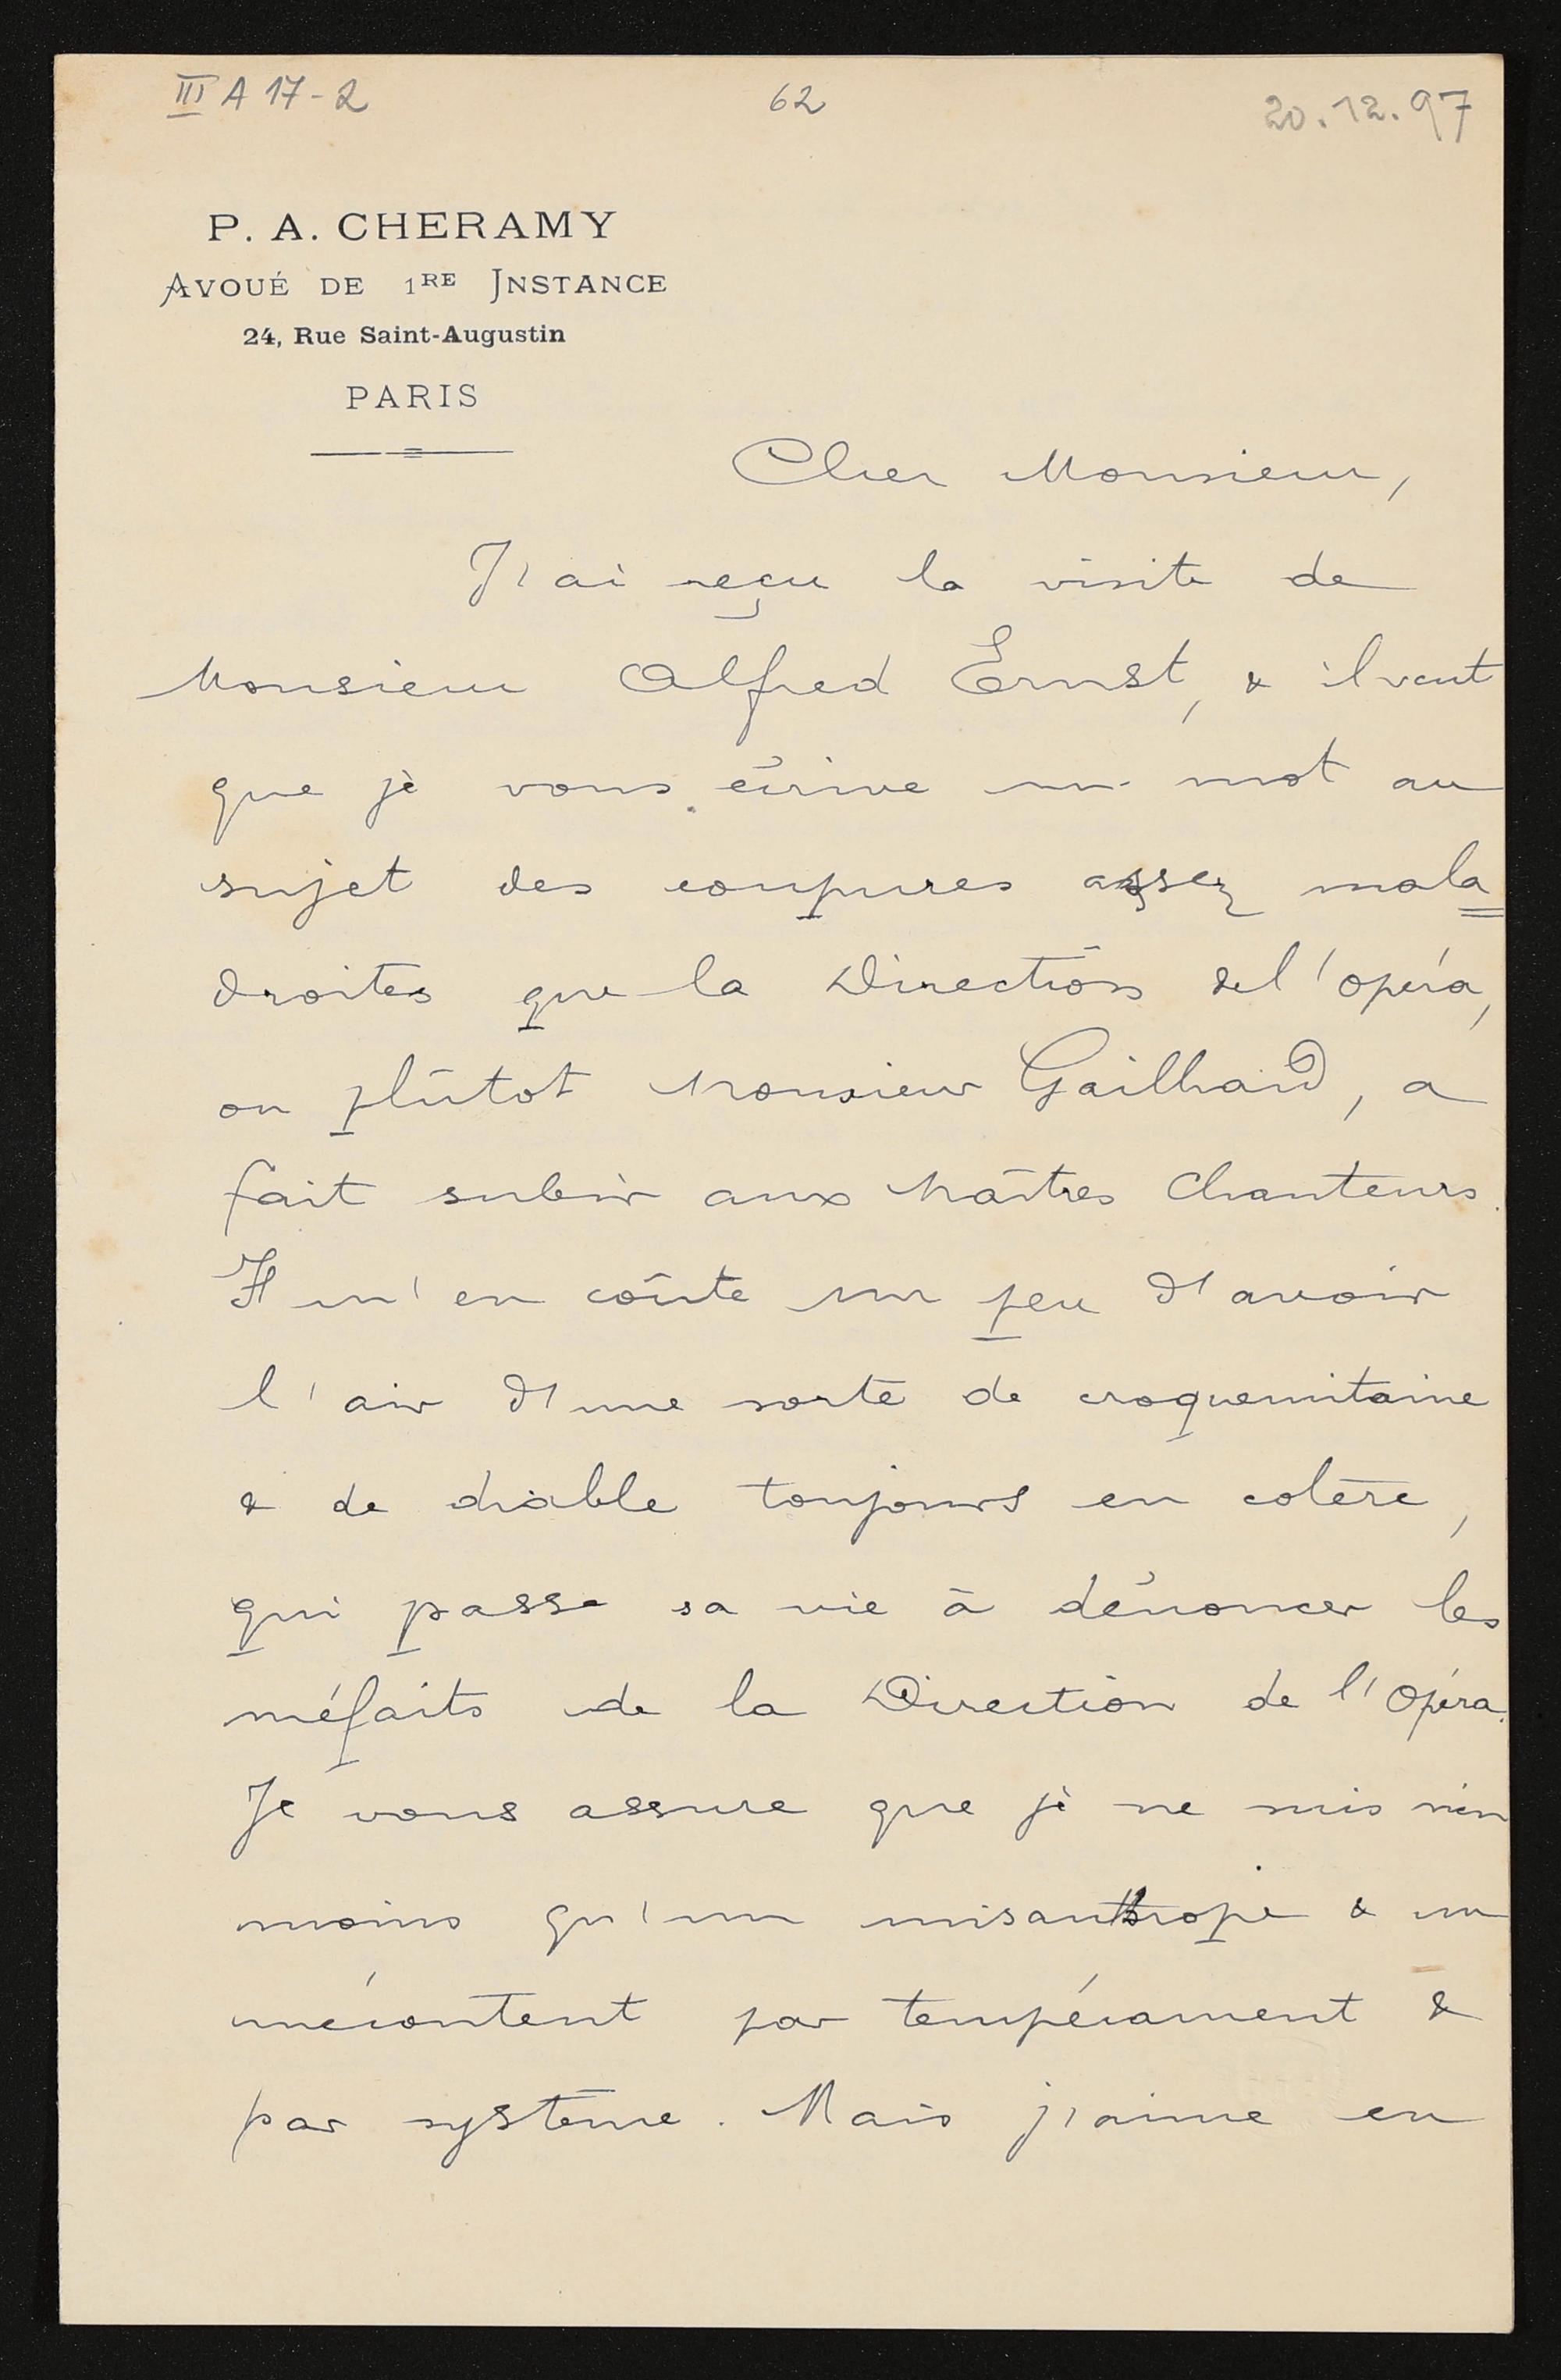 III A 17-2
62
20.12.97
P. A. CHERAMY
AVOUÉ DE 1RE INSTANCE
24, Rue Saint-Augustin
PARIS
Cher Monsieur,
J'ai reçu la visite de
Monsieur Alfred Ernst, & il veut
que je vous écrive un mot au
sujet des coupures assez mala
droites que la Direction de l'opéra,
ou plûtot Monsieur Gailhard, a
fait subir aux Maîtres Chanteurs.
Il m'en coûte un peu d'avoir
l'air d'une sorte de croquemitaine
& de diable toujours en colère,
qui passe sa vie à dénoncer les
méfaits de la Direction de l'Opéra.
Je vous assure que je ne suis rien
moins qu'un misanthrope & un
mécontent par tempérament &
par système. Mais j'aime en